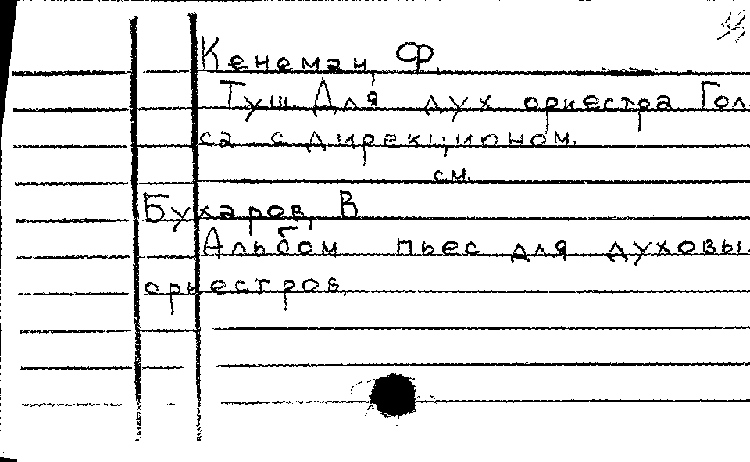 Кенеман, Ф.
Туш Для дух оркестра Гол
са с дирекционом.
см.
Бухаров, В
Альбом пьес для духовы
оркестров